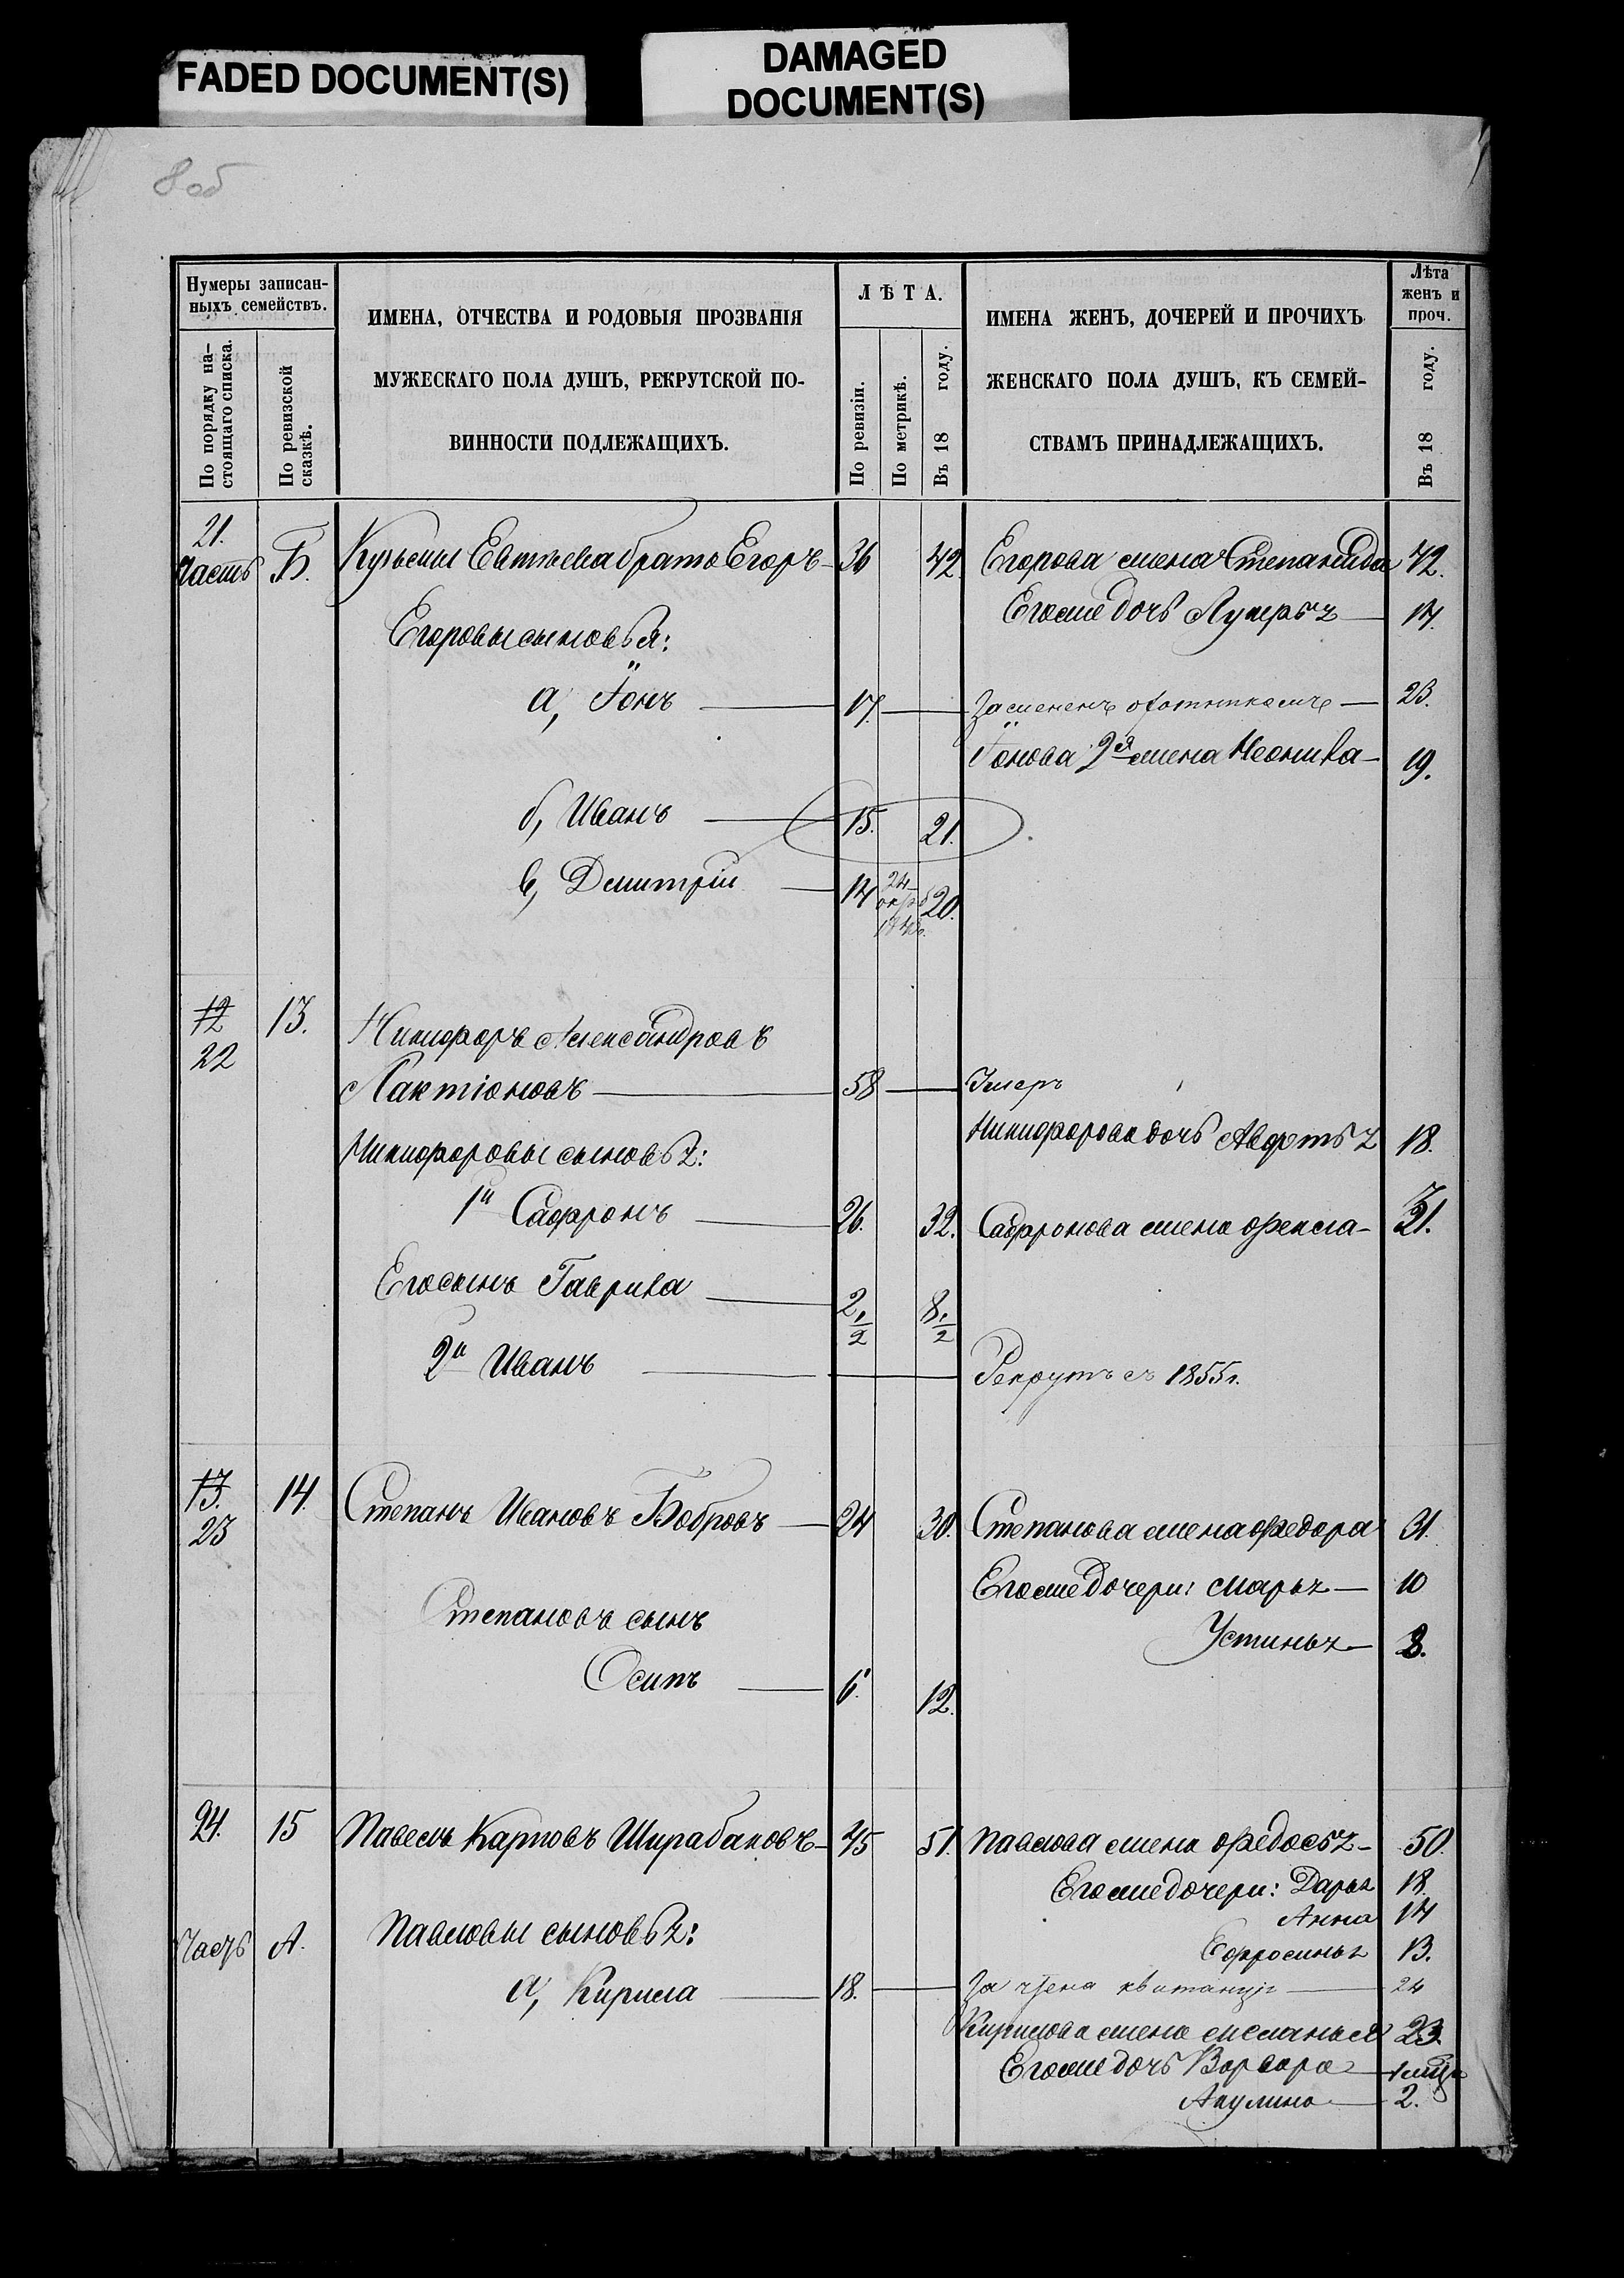 FADED DOCUMENT(S)
DAMAGED
DOCUMENT(S)
8 об
Нумеры записан-
ныхъ семействъ.
По порядку на-
стоящаго списка.
По ревизской
сказкѣ.
ИМЕНА, ОТЧЕСТВА И РОДОВЫЯ ПРОЗВАНІЯ
МУЖЕСКАГО ПОЛА ДУШЪ, РЕКРУТСКОЙ ПО-
ВИННОСТИ ПОДЛЕЖАЩИХЪ.
ЛѢТА.
По ревизіи.
По метрикѣ.
Въ 18 году.
ИМЕНА ЖЕНЪ, ДОЧЕРЕЙ И ПРОЧИХЪ
ЖЕНСКАГО ПОЛА ДУШЪ, КЪ СЕМЕЙ-
СТВАМЪ ПРИНАДЛЕЖАЩИХЪ.
Лѣта
женъ и
проч.
Въ 18 году.
21.
Часть Б. Кузьмы Евтѣева братъ Егоръ 36 42. Егорова жена Степанида 42.
Егоже дочь Лукерья 17.
Егоровы сыновья:
а, Іонъ 17. Замененъ охотникомъ 23.
Іонова 2я жена Неонила 19.
б, Иванъ 15. 21.
в, Дмитрій 14 24 20.
12 13. Никифоръ Александровъ
22
Лактіоновъ 58 Умеръ
Никифорова дочь Авдотья 18.
Никифоровы сыновья:
1й Сафронъ 26. 32. Сафронова жена Фекла 31.
Его сынъ Гаврила 2 1/2 8 1/2
2й Иванъ Рекрутъ съ 1855 г.
13. 14. Степанъ Ивановъ Бобровъ 24 30. Степанова жена Федора 31.
23
Егоже дочери: Марья 10
Степановъ сынъ
Устинья 8.
Осипъ 6. 12.
24. 15 Павелъ Карповъ Ширабаковъ 45 51. Павлова жена Федосья 50.
Егоже дочери: Дарья 18.
Анна 14
Часть А. Павловы сыновья:
Ефросинья 13.
а, Кирила 18. Зачтена квитанція 24
Кирилова жена Меланья 23.
Егоже дочь Варвара
Акулина 2.